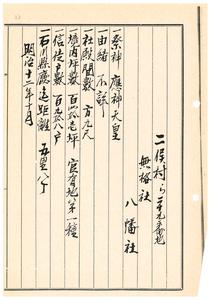 二俣村ら三十九番地
無格社
八幡社
一祭神 應神天皇
一由緒 不詳
一社殿間数 方九尺
一境内坪数 百四拾壱坪 官有地第一種
一信徒戸数 百九拾八戸
一石川県廳迄距離 五里八丁
明治十二年十月